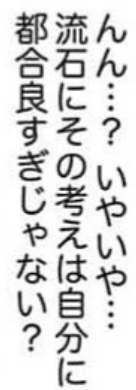 んん…？いやいや…
流石にその考えは自分に
都合良すぎじゃない？